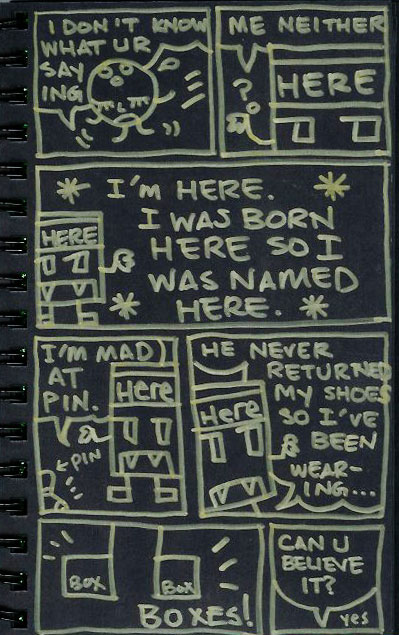 I DON'T KNOW
WHAT UR
SAY
ING
ME NEITHER
?
HERE
I'M HERE.
I WAS BORN
HERE SO I
WAS NAMED
HERE.
HERE
I'M MAD
AT
PIN.
Here
← PIN
HE NEVER
RETURNED
MY SHOES
SO I'VE
BEEN
WEAR-
ING...
Here
BOX
BOX
BOXES!
CAN U
BELIEVE
IT?
yes